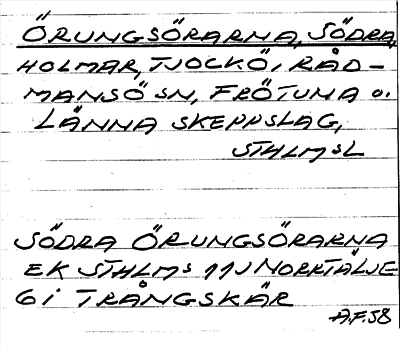 ÖRUNGSÖRARNA, SÖDRA,
HOLMAR, TJOCKÖ, RÅD-
MANSÖ SN, FRÖTUNA O.
LÄNNA SKEPPSLAG,
STHLMSL
SÖDRA ÖRUNGSÖRARNA
EK STHLMS 11J NORRTÄLJE
6 i TRÅNGSKÄR
AF.58